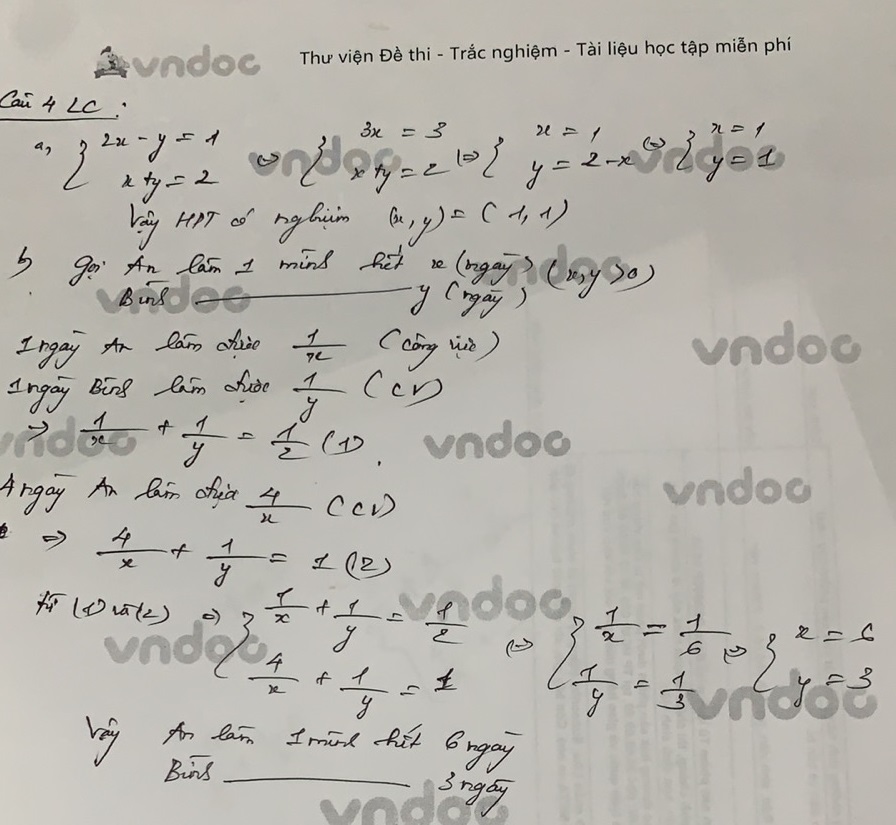 vndoc Thư viện Đề thi - Trắc nghiệm - Tài liệu học tập miễn phí
Câu 4 LC :
a, { 2x - y = 1 ⇔ { 3x = 3 ⇔ { x = 1 ⇔ { x = 1
x + y = 2 x + y = 2 y = 2 - x y = 1
Vậy HPT có nghiệm (x, y) = (1, 1)
b Gọi An làm 1 mình hết x (ngày) (x, y > 0)
Bình ———— y (ngày)
1 ngày An làm được 1/x (công việc)
1 ngày Bình làm được 1/y (CV)
⇒ 1/x + 1/y = 1/2 (1)
4 ngày An làm được 4/x (CV)
⇒ 4/x + 1/y = 1 (2)
Từ (1) và (2) ⇒ { 1/x + 1/y = 1/2 ⇔ { 1/x = 1/6 ⇔ { x = 6
4/x + 1/y = 1 1/y = 1/3 y = 3
Vậy An làm 1 mình hết 6 ngày
Bình ———— 3 ngày